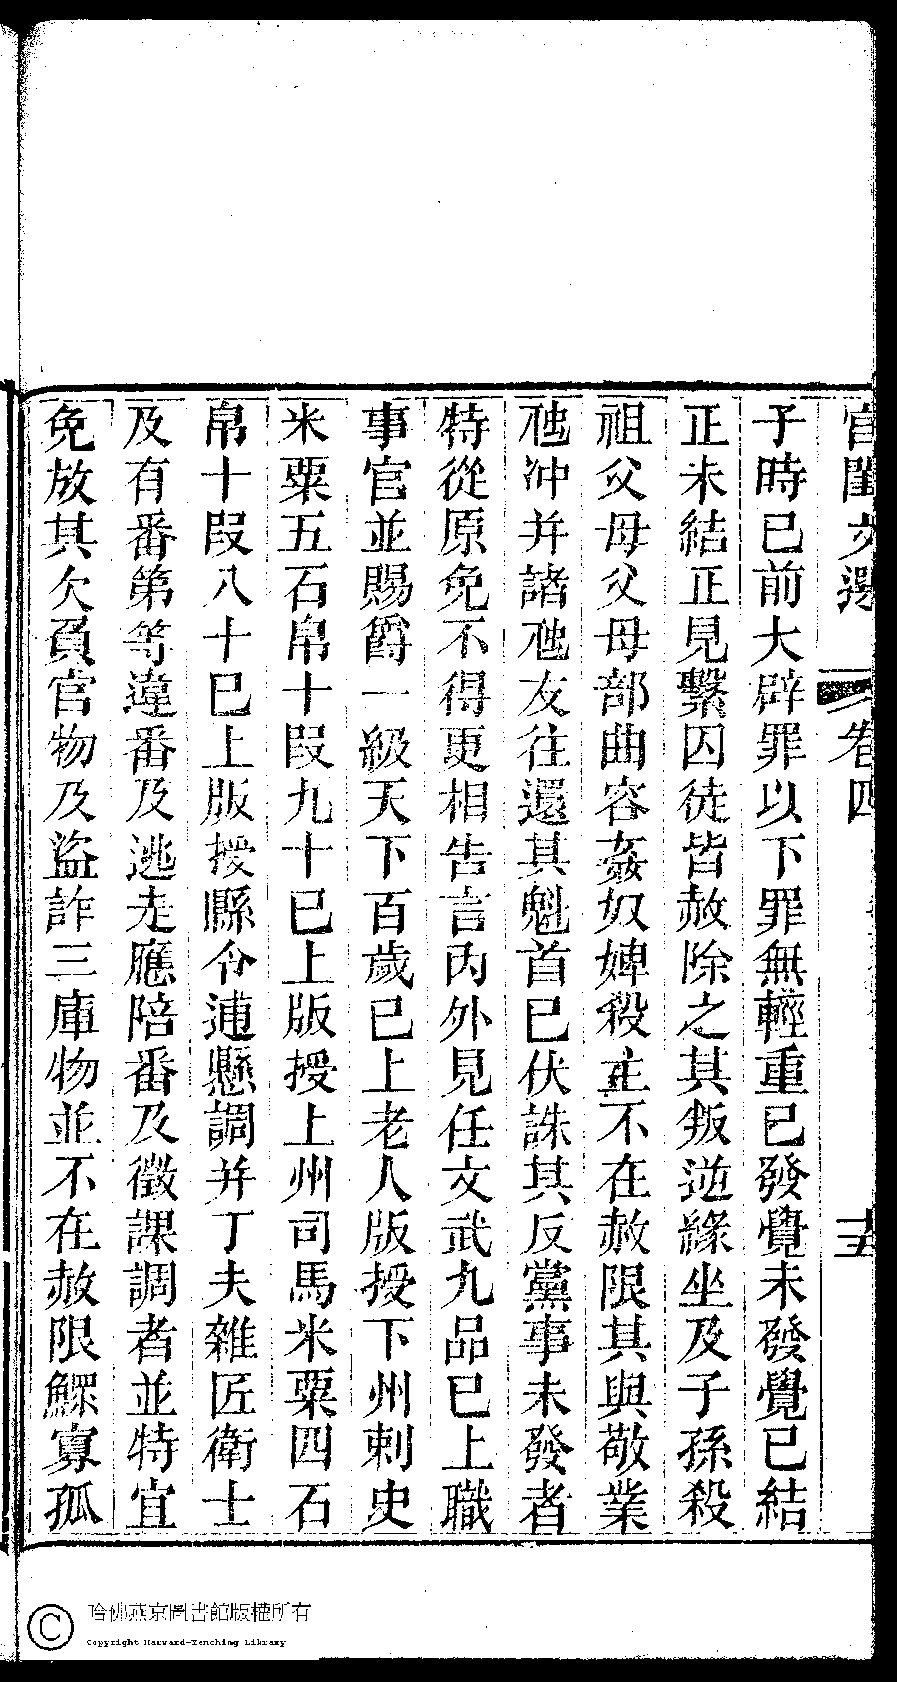 宮閨文選 卷四 十五
子時已前大辟罪以下罪無輕重已發覺未發覺已結
正未結正見繫囚徒皆赦除之其叛逆緣坐及子孫殺
祖父母父母部曲容姦奴婢殺主不在赦限其與敬業
虺冲并諸虺友往還其魁首已伏誅其反黨事未發者
特從原免不得更相告言內外見任文武九品已上職
事官並賜爵一級天下百歲已上老人版授下州刺史
米粟五石帛十段九十已上版授上州司馬米粟四石
帛十段八十已上版授縣令逋懸調并丁夫雜匠衛士
及有番第等違番及逃走應陪番及徵課調者並特宜
免放其欠負官物及盜詐三庫物並不在赦限鰥寡孤
哈佛燕京圖書館版權所有
Copyright Harvard-Yenching Library